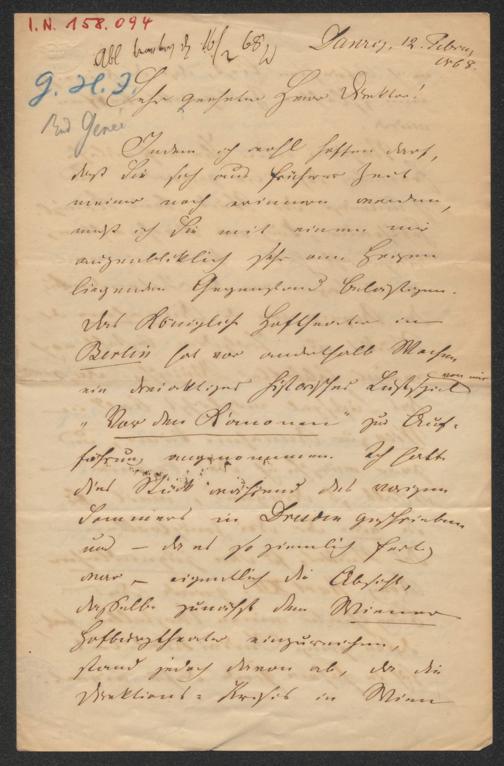 I.N. 158.094
Abl 16/2 68
Danzig, 12. Februar
1868.
G. H. J.
Rud Genée
Sehr geehrter Herr Direktor!
Indem ich wohl hoffen darf,
daß Sie sich aus früherer Zeit
meiner noch erinnern werden,
muß ich Sie mit einem mir
augenblicklich sehr am Herzen
liegenden Gegenstand belästigen.
Das Königlich Hoftheater in
Berlin hat vor anderthalb Wochen
ein dreiaktiges historisches Lustspiel von mir
"Vor den Kanonen" zur Auf-
führung angenommen. Ich hatte
dies Stück während des vorigen
Sommers in Dresden geschrieben
und — da es so ziemlich fertig
war — eigentlich die Absicht,
dasselbe zunächst dem Wiener
Hofburgtheater einzureichen,
stand jedoch davon ab, da die
Direktions-Krisis in Wien